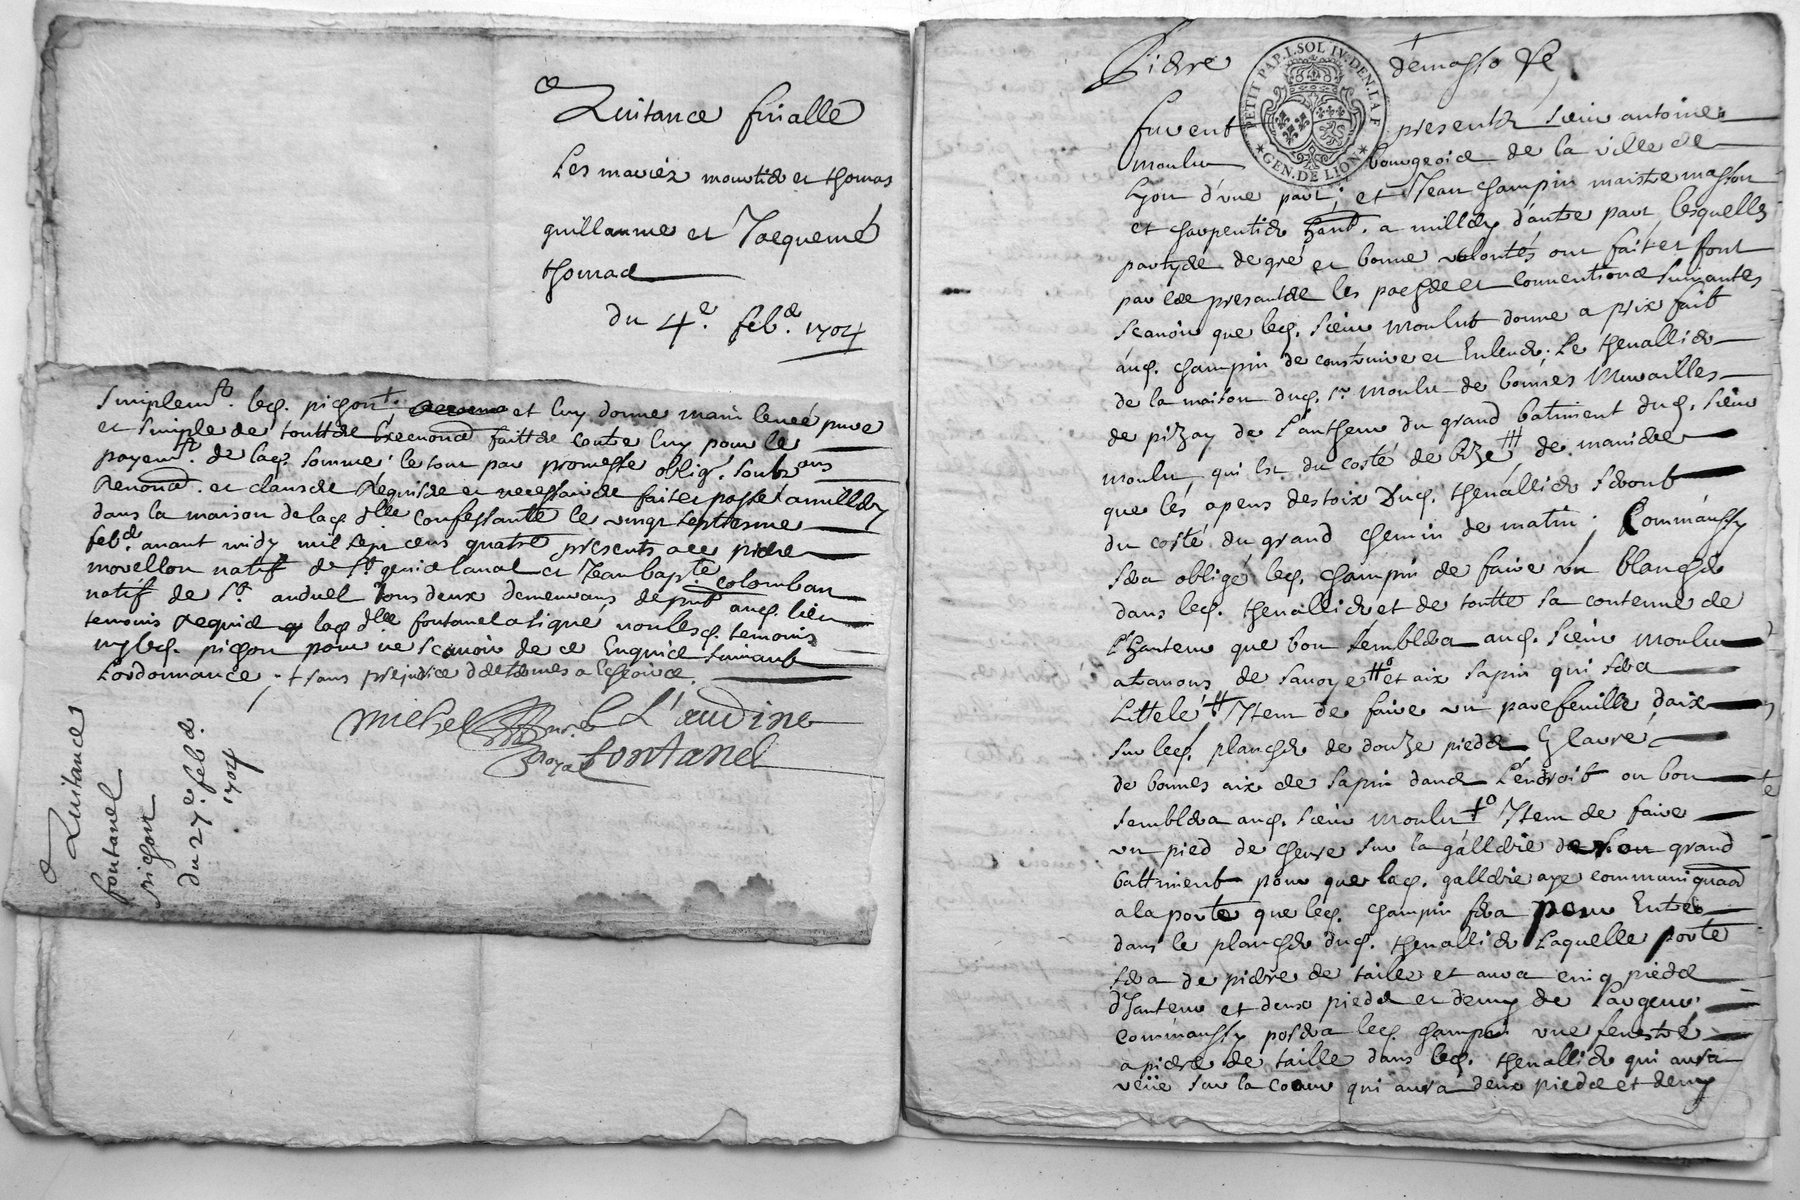 Quitance finalle
Les mariéz moutier et thomas
guillaume et Jacquemé
thomas
du 4e. feb. 1704
Simplemt. led. pichont, et luy donne main levée pure
et simple de touttes faittes contre luy pour le
payemt. de lad. somme le tout par promesse oblig. soubz
Renond. et clauses Requises et necessaires fait et passé a millery
dans la maison de lad. dlle confessante le vingt septiesme
feb. avant midy mil sept cens quatre presents
natif de St. genis laval et Jean bapte. colomban
natif de St. anduel tous deux demeurans de pnt aud. lieu
temoins Requis lad. dlle fontanel a signé non lesd. temoins
ny led. pichon pour ne scavoir de ce Enquis suivant
L'ordonnance, + sans prejudice des termes a
michel L'audine
fontanel
Quitance
fontanel
pichon
du 27e. feb.
1704
PETIT PAP. I. SOL IV. DEN. LA F
GEN. DE LION
furent presents sieur antoine
moulu bourgeois de la ville de
Lyon d'une part, et Jean champin maistre masson
et charpentier hant. a millery d'autre part, lesquelles
partyes de gré et bonne volontés ont fait et font
par ces presantes les et conventions suivantes
scavoir que led. sieur moulut donne a prix fait
aud. champin de construire et Le thenallier
de la maison dud. sr. moulu de bonnes Murailles
de pizay de L'autheur du grand batiment dud. sieur
moulu, qui est du costé de bize de maniere
que lés apens des toix dud. thenallier seront
du costé du grand chemin de matin, Comm'aussy
sera obligé led. champin de faire un plancher
dans led. thenallier et de toutte sa contenue de
L'hauteur que bon semblera aud. sieur moulu
a travons de savoye et aix sapin qui sera
Littelé Item de faire un parefeuille d'aix
sur led. plancher de douze pieds En
de bonnes aix de sapin dans L'endroit ou bon
semblera aud. sieur moulu Item de faire
un pied de chevre sur la gallerie de son grand
battiment pour que lad. gallerie aye
a la porte que led. champin fera pour Entrer
dans le plancher dud. thenallier Laquelle porte
sera de pierre de taille et aura cinq pieds
d'hauteur et deux pieds et demy de Largeur,
comm'aussy posera led. champin une fenestre
a pierre de taille dans led. thenallier qui aura
veüe sur la cour qui aura deux pieds et demy